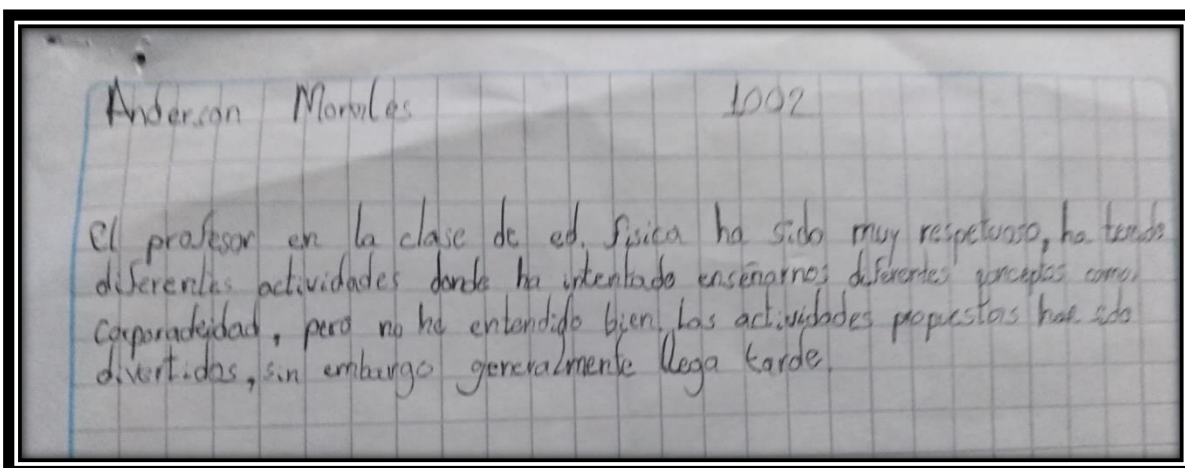 Anderson Morales 1002
El profesor en la clase de ed. física ha sido muy respetuoso, ha tenido
diferentes actividades donde ha intentado enseñarnos diferentes conceptos como
corporadeidad, pero no he entendido bien, las actividades propuestas han sido
divertidas, sin embargo generalmente llega tarde.